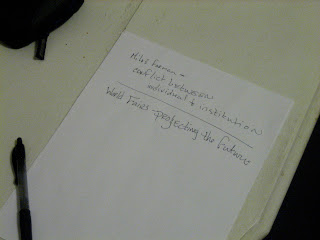 Milos Forman -
conflict between
individual + institution
World Fairs projecting the future